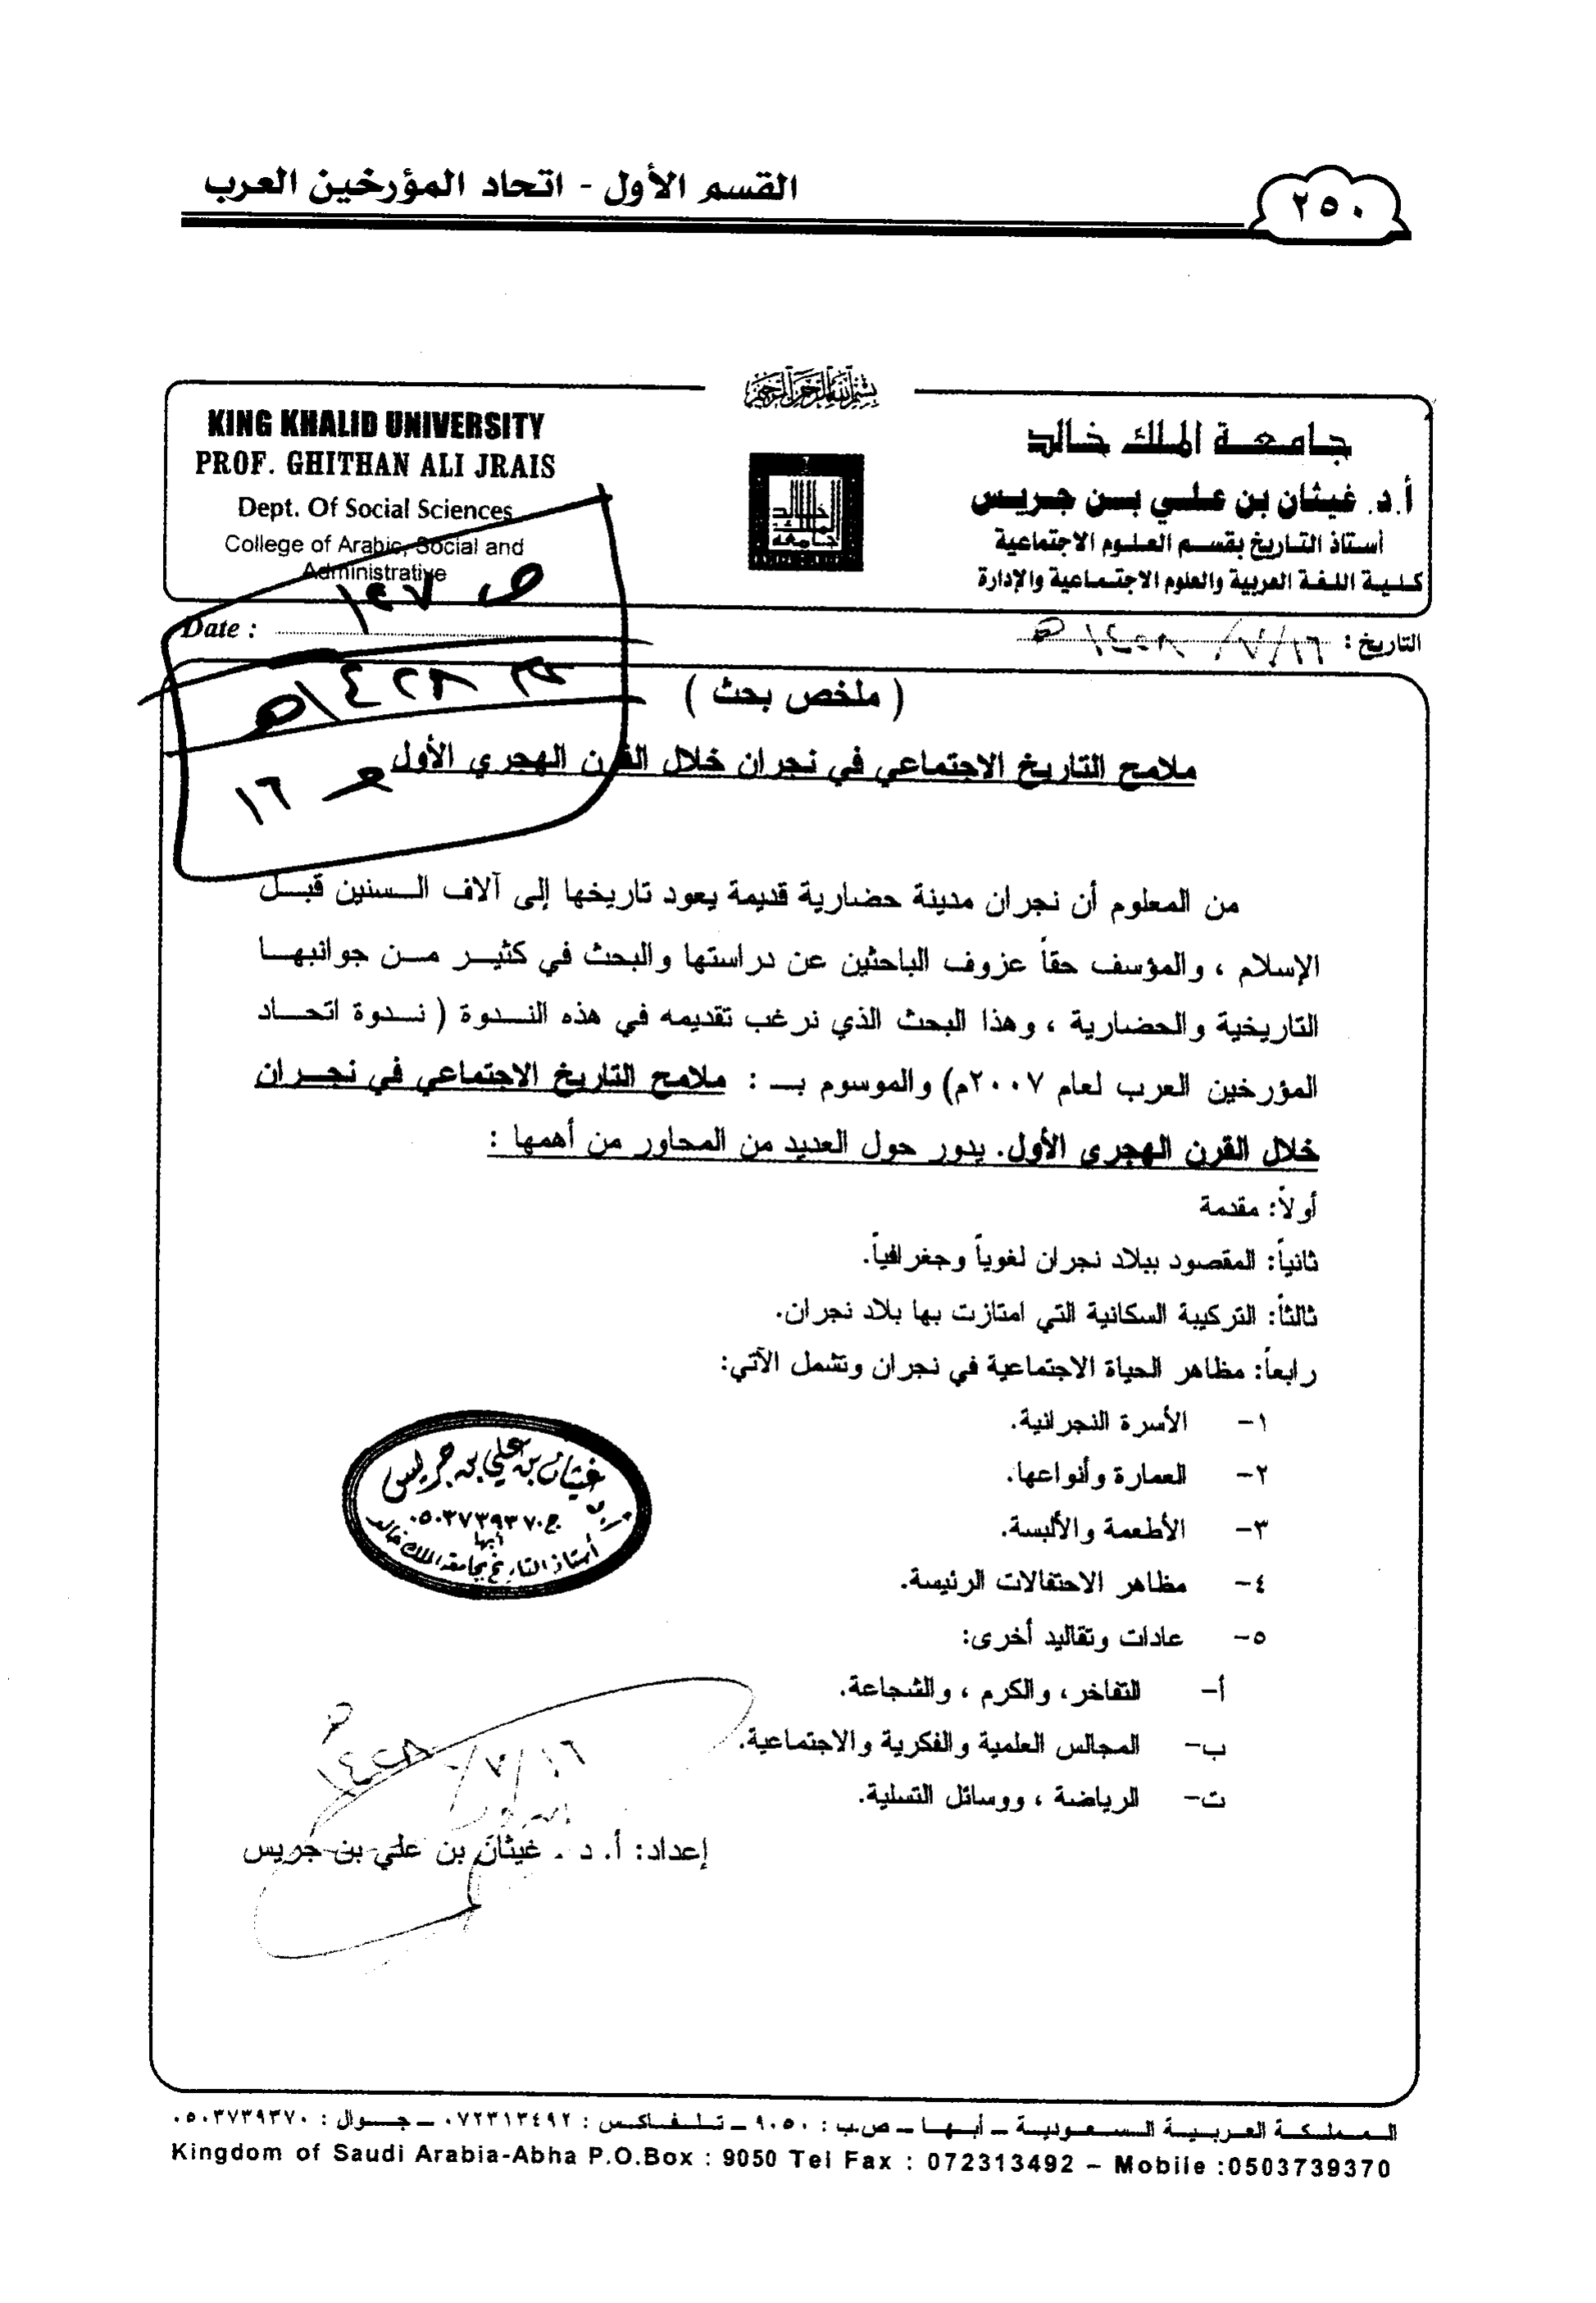 القسم الأول - اتحاد المؤرخين العرب
٢٥٠
بسم الله الرحمن الرحيم
KING KHALID UNIVERSITY
PROF. GHITHAN ALI JRAIS
Dept. Of Social Sciences
College of Arabic, Social and
Administrative
جامعة الملك خالد
أ.د. غيثان بن علي بن جريس
أستاذ التاريخ بقسم العلوم الاجتماعية
كلية اللغة العربية والعلوم الاجتماعية والإدارة
جامعة الملك خالد
Date :
التاريخ : ١٦/٧/١٤٢٨هـ
ص ١٤٧
١٤٢٨هـ
١٦
( ملخص بحث )
ملامح التاريخ الاجتماعي في نجران خلال القرن الهجري الأول
من المعلوم أن نجران مدينة حضارية قديمة يعود تاريخها إلى آلاف السنين قبل
الإسلام ، والمؤسف حقاً عزوف الباحثين عن دراستها والبحث في كثير من جوانبها
التاريخية والحضارية ، وهذا البحث الذي نرغب تقديمه في هذه الندوة ( ندوة اتحاد
المؤرخين العرب لعام ٢٠٠٧م) والموسوم بـ : ملامح التاريخ الاجتماعي في نجران
خلال القرن الهجري الأول. يدور حول العديد من المحاور من أهمها :
أولاً: مقدمة
ثانياً: المقصود ببلاد نجران لغوياً وجغرافياً.
ثالثاً: التركيبة السكانية التي امتازت بها بلاد نجران.
رابعاً: مظاهر الحياة الاجتماعية في نجران وتشمل الآتي:
١- الأسرة النجرانية.
٢- العمارة وأنواعها.
٣- الأطعمة والألبسة.
٤- مظاهر الاحتفالات الرئيسة.
٥- عادات وتقاليد أخرى:
أ- التفاخر، والكرم ، والشجاعة.
ب- المجالس العلمية والفكرية والاجتماعية.
ت- الرياضة ، ووسائل التسلية.
غيثان بن علي بن جريس
ج ٠٥٠٣٧٣٩٣٧٠
أبها
أستاذ التاريخ بجامعة الملك خالد
١٦/٧/١٤٢٨هـ
إعداد: أ. د . غيثان بن علي بن جريس
المملكة العربية السعودية – أبها – ص.ب : ٩٠٥٠ – تلفاكس : ٠٧٢٣١٣٤٩٢ – جوال : ٠٥٠٣٧٣٩٣٧٠
Kingdom of Saudi Arabia-Abha P.O.Box : 9050 Tel Fax : 072313492 – Mobile :0503739370